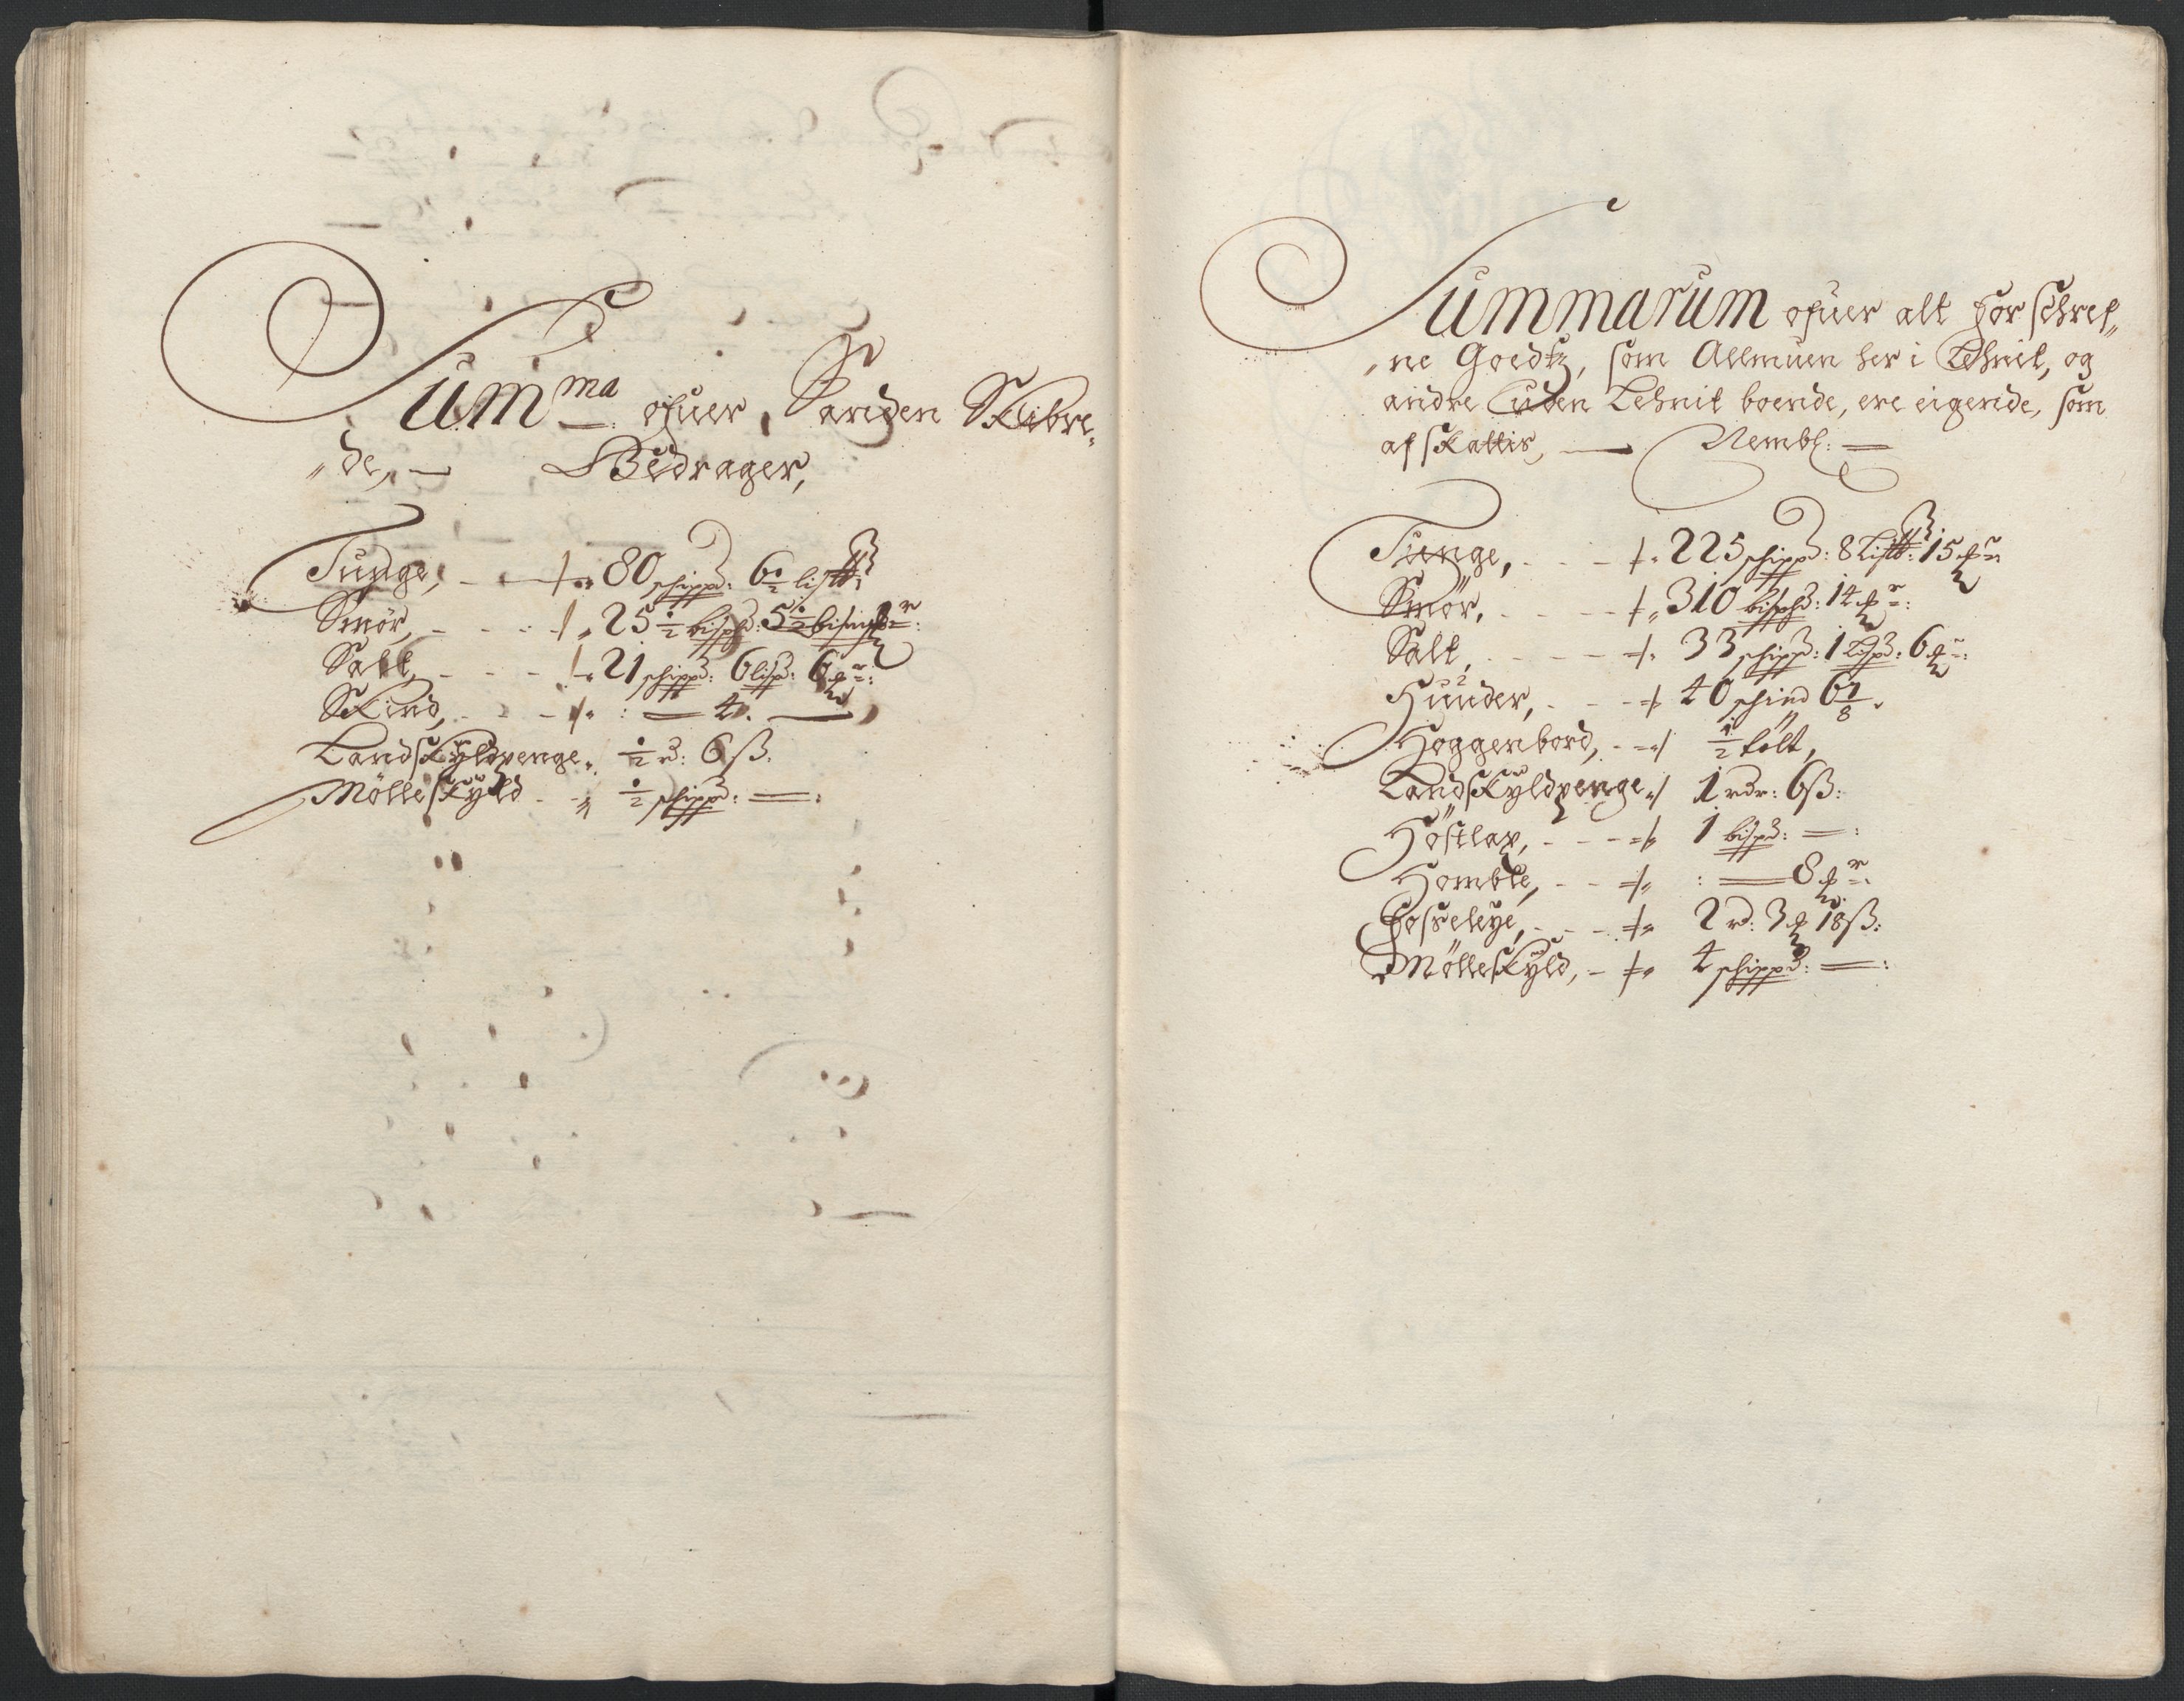 Sum̄ ma ofuer, Sanden Skibre„
„de, — Bedrager,
Tunge, — 80 schippd: 6½ lispd:
Smör, — 25½ bispd: 5½ bismpr:
Salt, — 21 schippd: 6 lispd: 6 pr:
Skind, — 4. —
Landskyldpenge, ½ rd: 6 ß.
Mölleskyld — ½ schippd: =:
Summarum ofuer alt forschref„
„ne Goedtz, som Allmuen her i Lehnit, og
andre uden Lehnit boende, ere eigende, som
af skattis, — Nembl: —
Tunge, — 225 schippd: 8 Lispd: 15 pr:
Smör, — 310 bispd: 14 pr:
Salt, — 33 schippd: 1 Lispd: 6 pr:
Huder, — 40 schind 6⅞.
Hoggenbord, — ½ tolt,
Landskyldpenge, 1 rdr: 6 ß:
Höstlax, — 1 bispd: =:
Homble, — : = 8 pr:
Fosseleye, — 2 rd: 3 p 18 ß:
Mölleskyld, — 4 schippd: =: